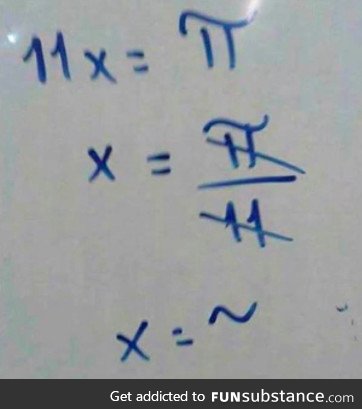 11x = π
x = π/11
x = ~
Get addicted to FUNsubstance.com